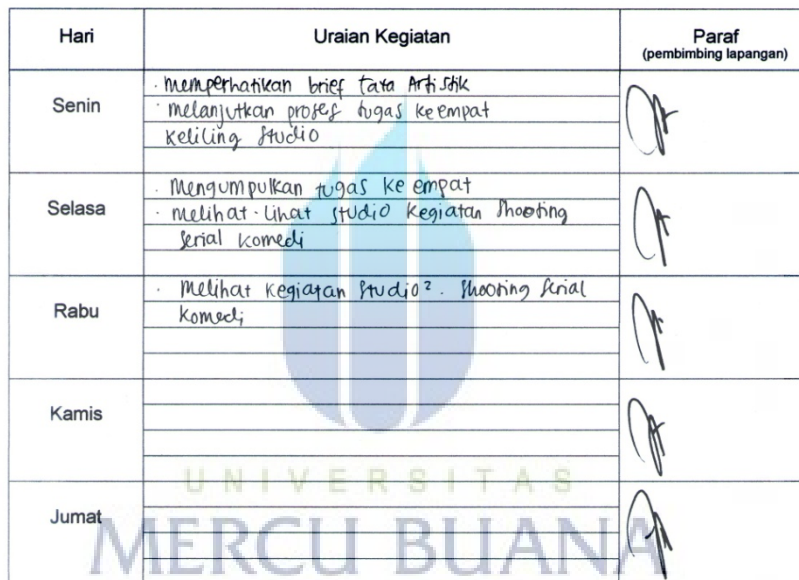 Hari Uraian Kegiatan Paraf
(pembimbing lapangan)
Senin
· memperhatikan brief tata Artistik
· melanjutkan proses tugas keempat
keliling studio
Selasa
· Mengumpulkan tugas ke empat
· melihat-lihat studio kegiatan shooting
serial komedi
Rabu
· Melihat kegiatan studio². shooting serial
komedi
Kamis
UNIVERSITAS
Jumat
MERCU BUANA